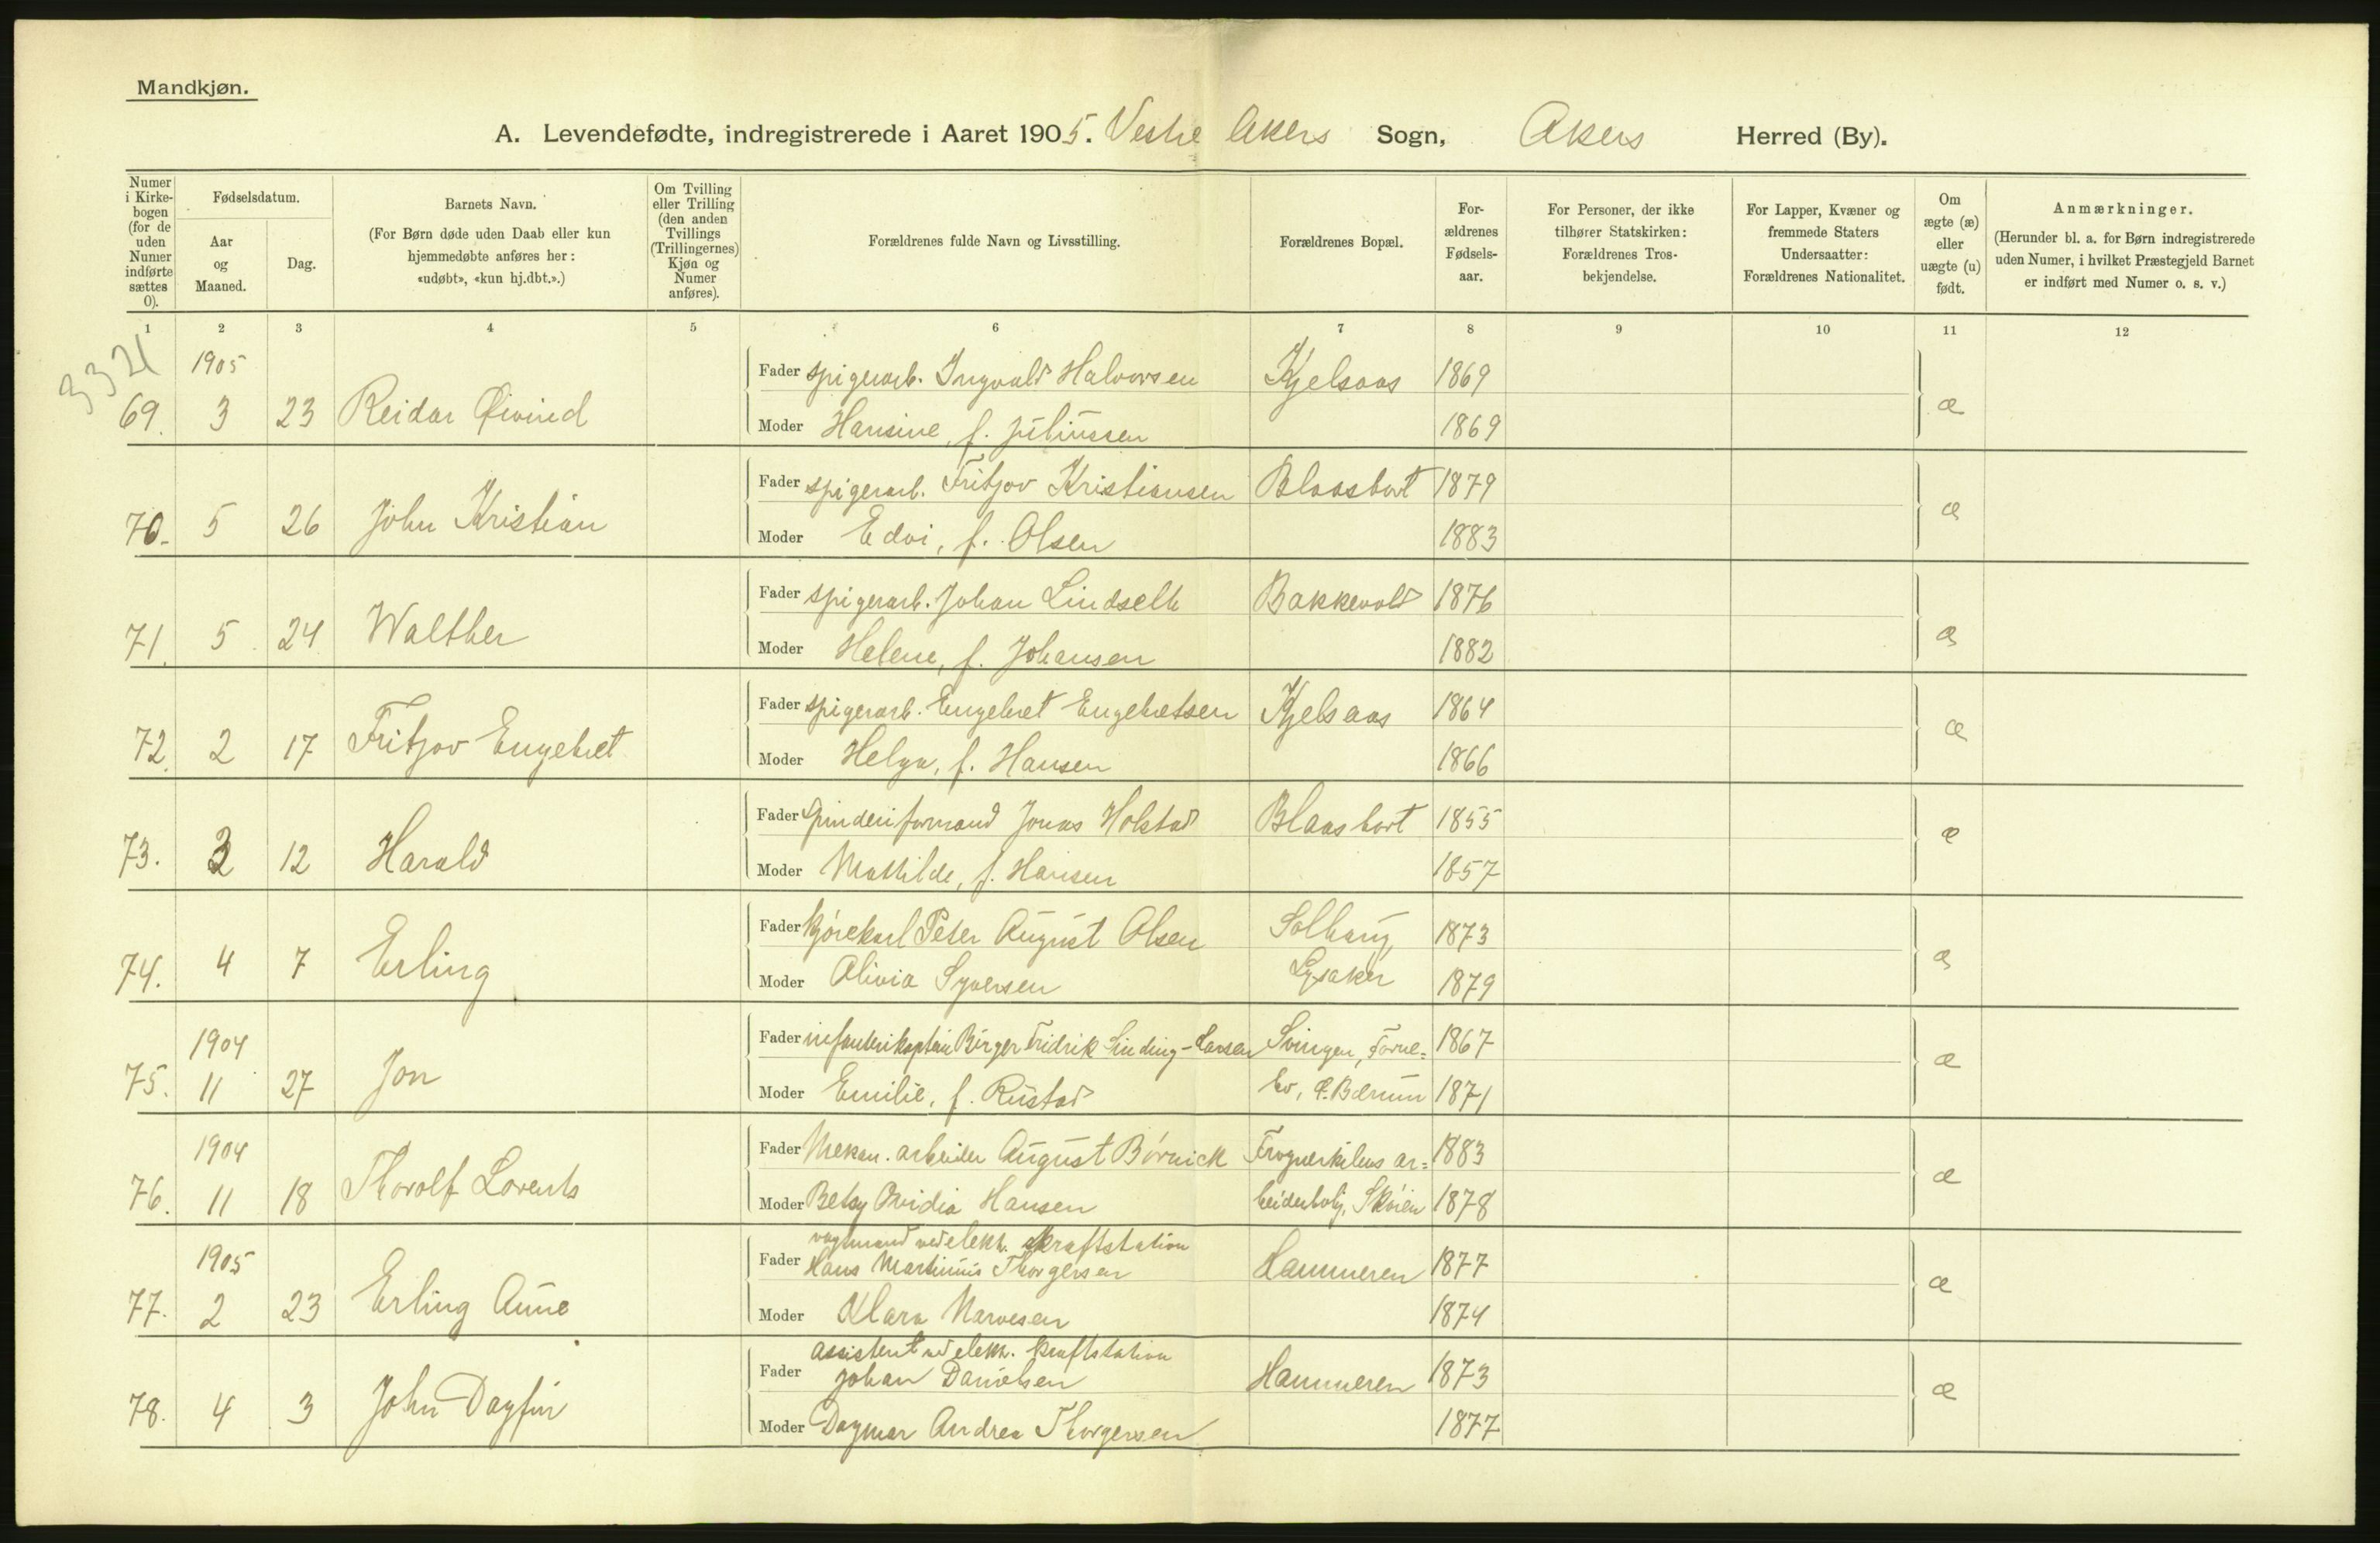 Mandkjøn.
A. Levendefødte, indregistrerede i Aaret 1905. Vestre Akers Sogn, Akers Herred (By).
Numer i Kirkebogen (for de uden Numer indførte sættes 0).
Fødselsdatum.
Aar og Maaned.
Dag.
Barnets Navn.
(For Børn døde uden Daab eller kun hjemmedøbte anføres her: «udøbt», «kun hj.dbt.».)
Om Tvilling eller Trilling (den anden Tvillings (Trillingernes) Kjøn og Numer anføres).
Forældrenes fulde Navn og Livsstilling.
Forældrenes Bopæl.
Forældrenes Fødselsaar.
For Personer, der ikke tilhører Statskirken: Forældrenes Trosbekjendelse.
For Lapper, Kvæner og fremmede Staters Undersaatter: Forældrenes Nationalitet.
Om ægte (æ) eller uægte (u) født.
Anmærkninger.
(Herunder bl. a. for Børn indregistrerede uden Numer, i hvilket Præstegjeld Barnet er indført med Numer o. s. v.)
1 2 3 4 5 6 7 8 9 10 11 12
3321
1905 Fader spigerarb. Ingvald Halvorsen Kjelsaas 1869
69. 3 23 Reidar Øivind Moder Hansine, f. Juliussen 1869 æ
Fader spigerarb. Fritjov Kristiansen Blaasbort 1879
70. 5 26 John Kristian Moder Edvi, f. Olsen 1883 æ
Fader spigerarb. Johan Lindseth Bakkevold 1876
71. 5 24 Walther Moder Helene, f. Johansen 1882 æ
Fader spigerarb. Engebret Engebretsen Kjelsaas 1864
72. 2 17 Fritjov Engebret Moder Helga, f. Hansen 1866 æ
Fader spinderiformand Jonas Holstad Blaasbort 1855
73. 3 12 Harald Moder Mathilde, f. Hansen 1857 æ
Fader kjørekarl Peter August Olsen Solhaug, 1873
74. 4 7 Erling Moder Olivia Syversen Lysaker 1879 æ
1904 Fader infanterikaptein Birger Fridrik Sinding-Larsen Svingen, Forne= 1867
75. 11 27 Jon Moder Emilie, f. Rustad bo, Ø. Bærum 1871 æ
1904 Fader Mekan. arbeider August Børnick Frognerkilens ar= 1883
76. 11 18 Thorolf Lorents Moder Betsy Ovidia Hansen beiderbolig, Skøien 1878 æ
vagtmand ved elektr. kraftstation
1905 Fader Hans Martinius Thorgersen Hammeren 1877
77. 2 23 Erling Aune Moder Klara Narvesen 1874 æ
assistent ved elektr. kraftstation
Fader Johan Danielsen Hammeren 1873
78. 4 3 John Dagfin Moder Dagmar Andrea Thorgersen 1877 æ